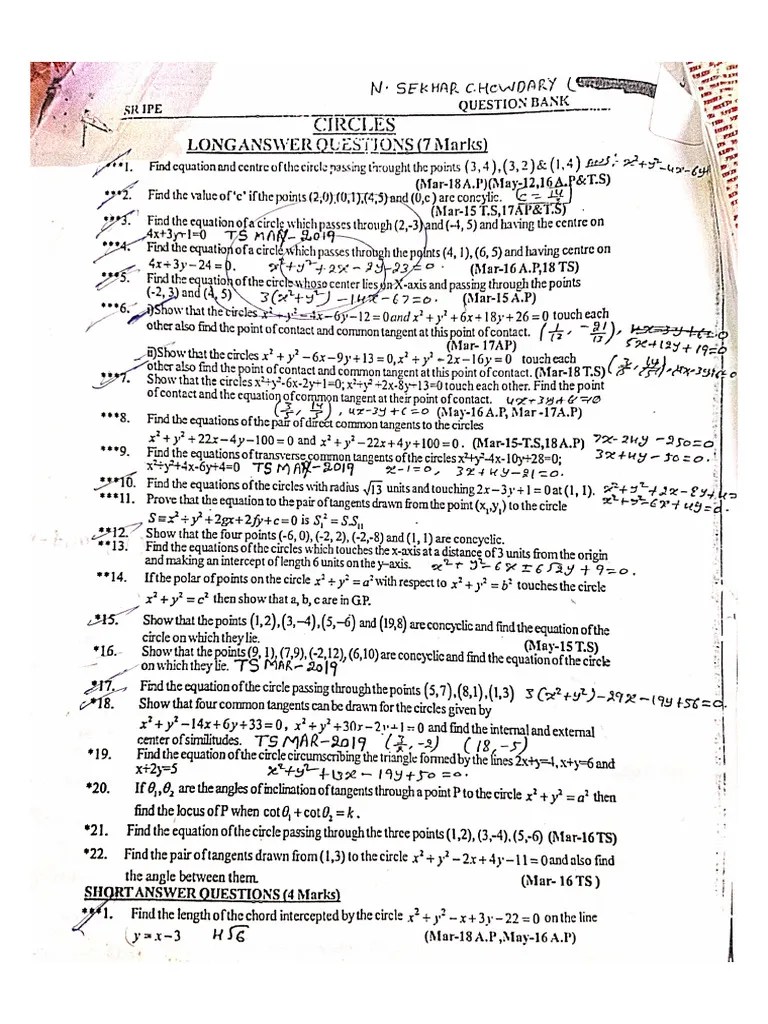 N. SEKHAR CHOWDARY (
SR IPE QUESTION BANK
CIRCLES
LONG ANSWER QUESTIONS (7 Marks)
***1. Find equation and centre of the circle passing throught the points (3, 4), (3, 2) & (1, 4) ans: x²+y²-4x-6y+
(Mar-18 A.P)(May-12,16 A.P&T.S)
***2. Find the value of 'c' if the points (2,0),(0,1),(4,5) and (0,c) are concylic. (c = 14/3)
(Mar-15 T.S,17AP&T.S)
***3. Find the equation of a circle which passes through (2,-3) and (-4, 5) and having the centre on
4x+3y+1=0 TS MAR-2019
***4. Find the equation of a circle which passes through the points (4, 1), (6, 5) and having centre on
4x + 3y - 24 = 0. x²+y²+2x-2y-23=0 (Mar-16 A.P,18 TS)
***5. Find the equation of the circle whose center lies on X-axis and passing through the points
(-2, 3) and (4, 5) 3(x²+y²)-14x-67=0. (Mar-15 A.P)
***6. i)Show that the circles x² + y² - 4x - 6y - 12 = 0 and x² + y² + 6x + 18y + 26 = 0 touch each
other also find the point of contact and common tangent at this point of contact. (1/12, -21/13),
(Mar- 17AP) 5x+12y+19=0
ii)Show that the circles x² + y² - 6x - 9y + 13 = 0, x² + y² - 2x - 16y = 0 touch each
other also find the point of contact and common tangent at this point of contact. (Mar-18 T.S)
***7. Show that the circles x²+y²-6x-2y+1=0; x²+y²+2x-8y+13=0 touch each other. Find the point
of contact and the equation of common tangent at their point of contact. 4x+3y+6=0
(3/5, 14/5), 4x-3y+6=0 (May-16 A.P, Mar -17A.P)
***8. Find the equations of the pair of direct common tangents to the circles
x² + y² + 22x - 4y - 100 = 0 and x² + y² - 22x + 4y + 100 = 0. (Mar-15-T.S,18 A.P) 7x-24y-250=0
3x+4y-50=0
***9. Find the equations of transverse common tangents of the circles x²+y²-4x-10y+28=0;
x²+y²+4x-6y+4=0 TS MAR-2019 x-1=0, 3x+4y-21=0.
***10. Find the equations of the circles with radius √13 units and touching 2x - 3y + 1 = 0 at (1, 1). x²+y²+2x-8y+4=
x²+y²-6x+4y=0.
***11. Prove that the equation to the pair of tangents drawn from the point (x₁,y₁) to the circle
S ≡ x² + y² + 2gx + 2fy + c = 0 is S₁² = S.S₁₁
**12. Show that the four points (-6, 0), (-2, 2), (-2,-8) and (1, 1) are concyclic.
**13. Find the equations of the circles which touches the x-axis at a distance of 3 units from the origin
and making an intercept of length 6 units on the y-axis. x²+y²-6x±6√2y+9=0.
**14. If the polar of points on the circle x² + y² = a² with respect to x² + y² = b² touches the circle
x² + y² = c² then show that a, b, c are in GP.
*15. Show that the points (1,2),(3,-4),(5,-6) and (19,8) are concyclic and find the equation of the
circle on which they lie. (May-15 T.S)
*16. Show that the points (9, 1), (7,9),(-2,12),(6,10) are concyclic and find the equation of the circle
on which they lie. TS MAR-2019
*17. Find the equation of the circle passing through the points (5,7),(8,1),(1,3) 3(x²+y²)-29x-19y+56=0.
*18. Show that four common tangents can be drawn for the circles given by
x² + y² - 14x + 6y + 33 = 0, x² + y² + 30x - 2y + 1 = 0 and find the internal and external
center of similitudes. TS MAR-2019 (3/2, -2) (18,-5)
*19. Find the equation of the circle circumscribing the triangle formed by the lines 2x+y=4, x+y=6 and
x+2y=5 x²+y²+13x-19y+50=0.
*20. If θ₁,θ₂ are the angles of inclination of tangents through a point P to the circle x² + y² = a² then
find the locus of P when cot θ₁ + cot θ₂ = k.
*21. Find the equation of the circle passing through the three points (1,2), (3,-4), (5,-6) (Mar-16 TS)
*22. Find the pair of tangents drawn from (1,3) to the circle x² + y² - 2x + 4y - 11 = 0 and also find
the angle between them. (Mar- 16 TS )
SHORT ANSWER QUESTIONS (4 Marks)
***1. Find the length of the chord intercepted by the circle x² + y² - x + 3y - 22 = 0 on the line
y = x - 3 4√6 (Mar-18 A.P ,May-16 A.P)